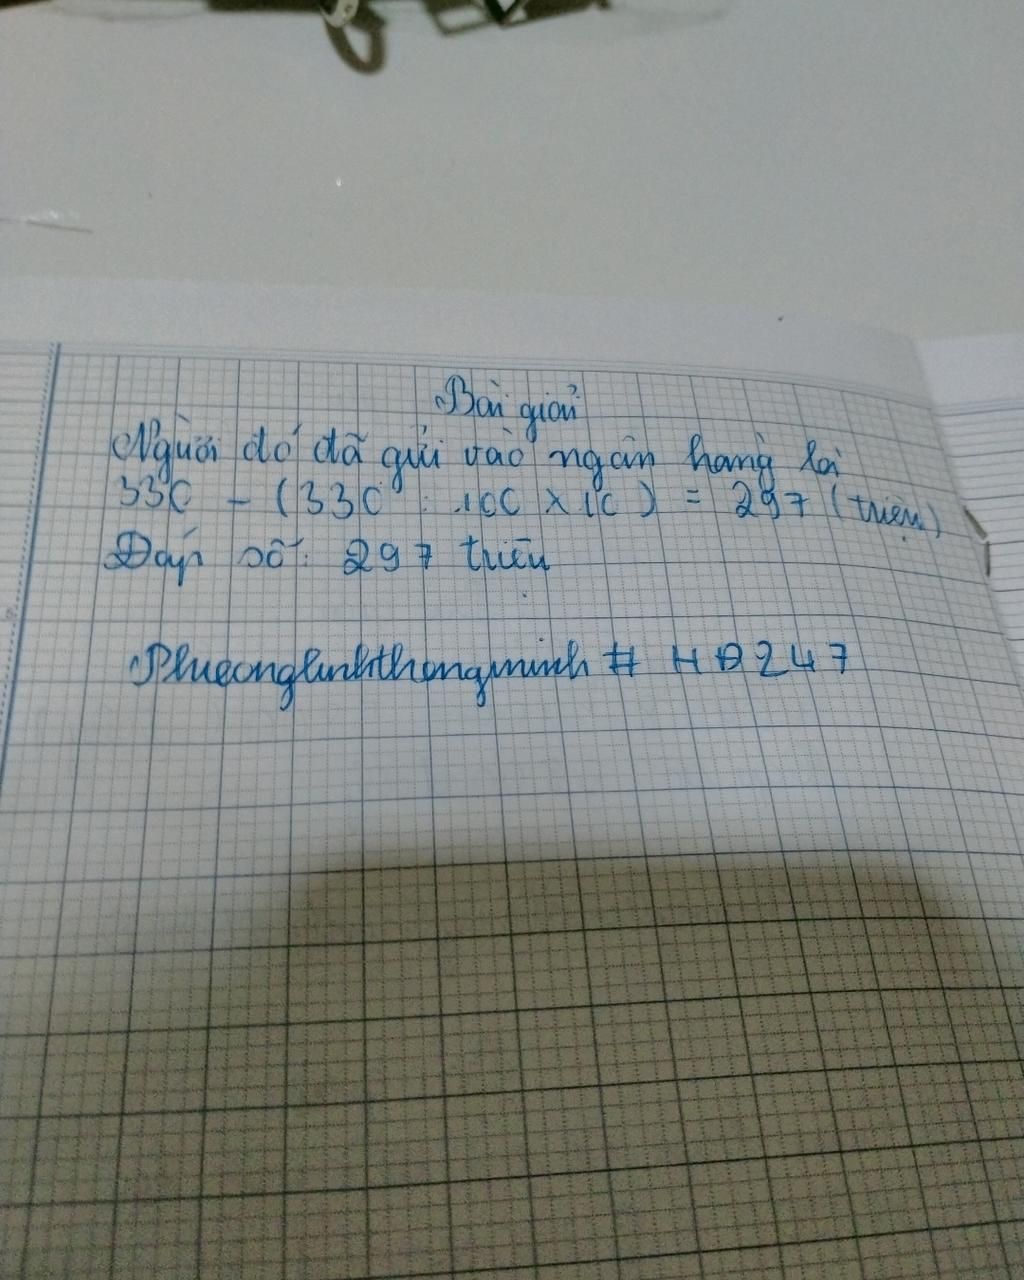 Bài giải
Người đó đã gửi vào ngân hàng lai
330 - (330 : 100 x 10) = 297 (triệu)
Đáp số: 297 triệu
Phueonglinhthongminh # HĐ247